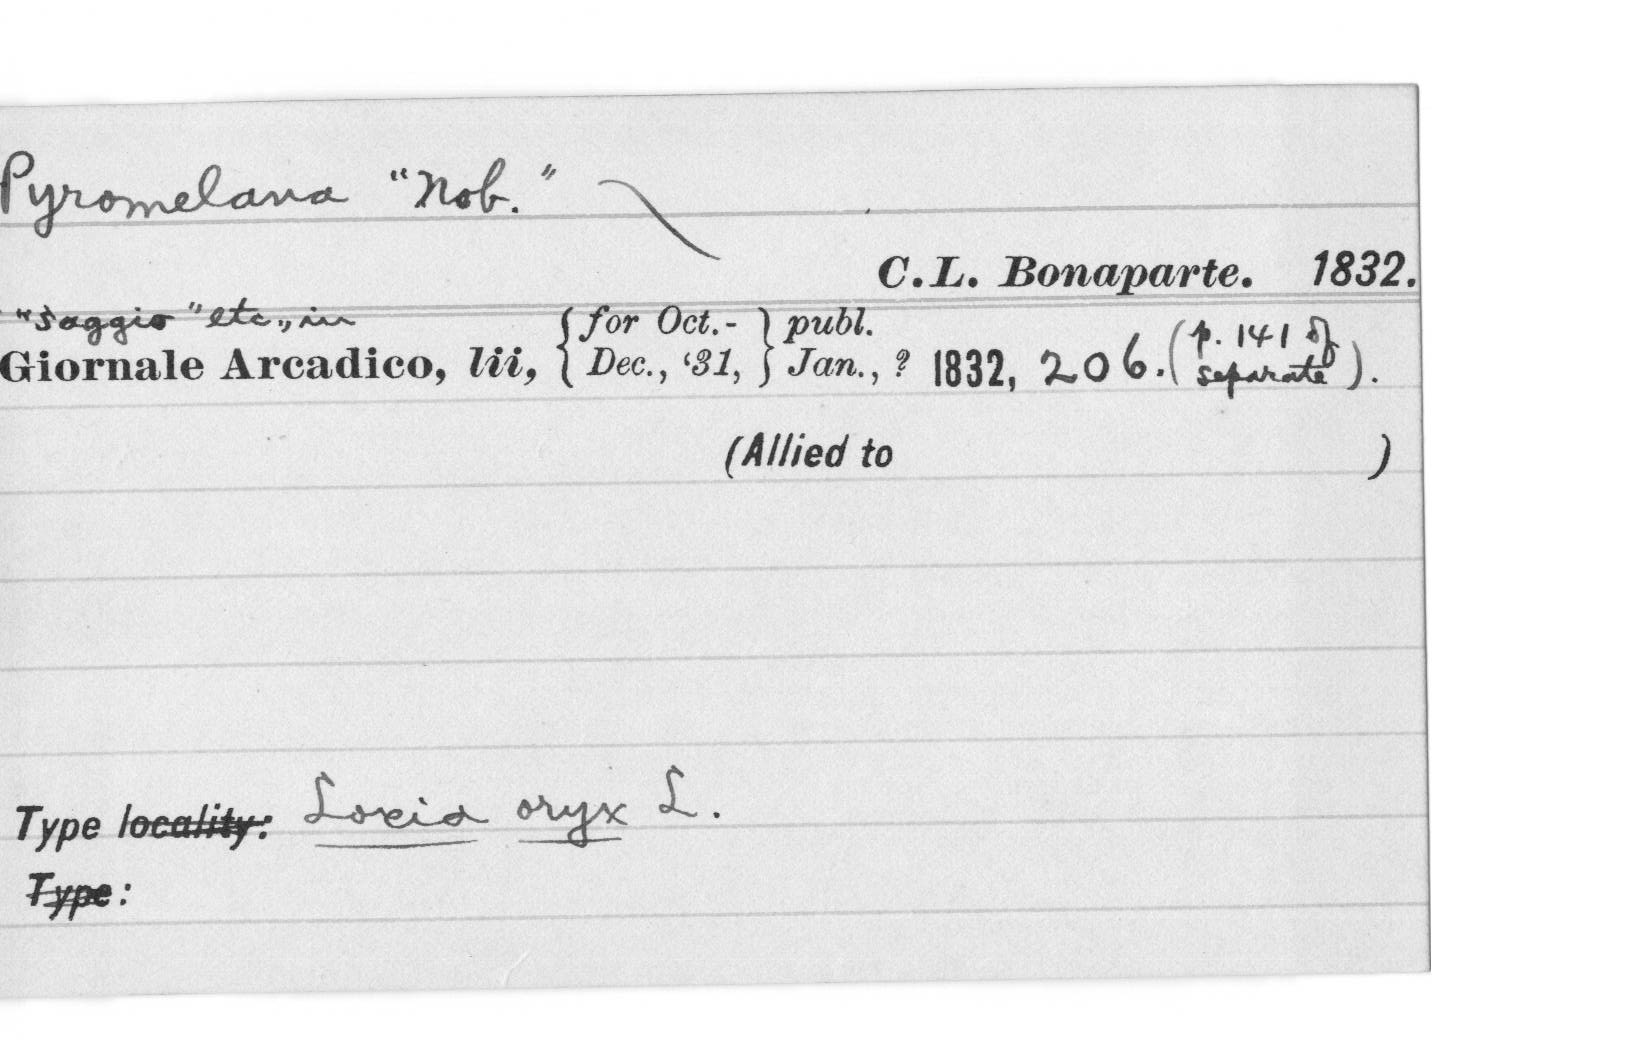 Pyromelana "Nob."
C.L. Bonaparte. 1832.
"Saggio" etc., in
Giornale Arcadico, lii, { for Oct.- Dec., '31, } publ. Jan., ? 1832, 206. (p. 141 of separate).
(Allied to )
Type locality: Loxia oryx L.
Type: